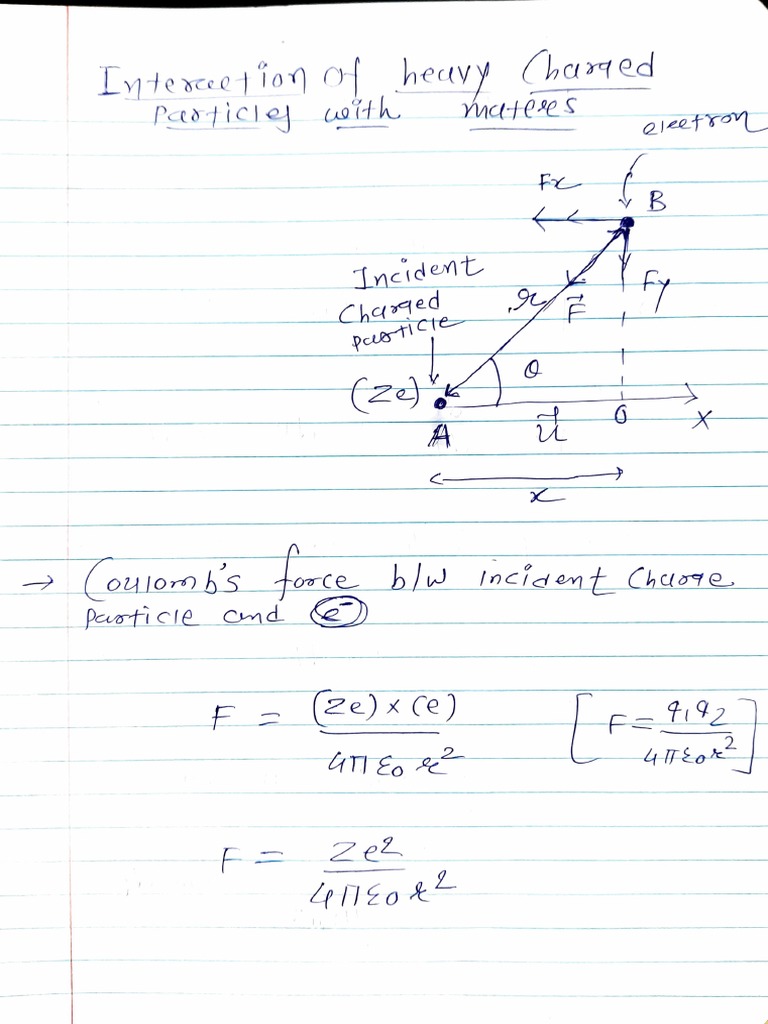 Interaction of heavy Charged
Particles with materes
electron
Fx
B
Incident
Charged
particle
r
F⃗
Fy
(Ze)
θ
A
u⃗
O
X
x
→ Coulomb's force b/w incident Charge
particle and e⁻
F = (Ze) × (e) / 4πε₀ r²
[F = q₁q₂ / 4πε₀r²]
F = Ze² / 4πε₀ r²